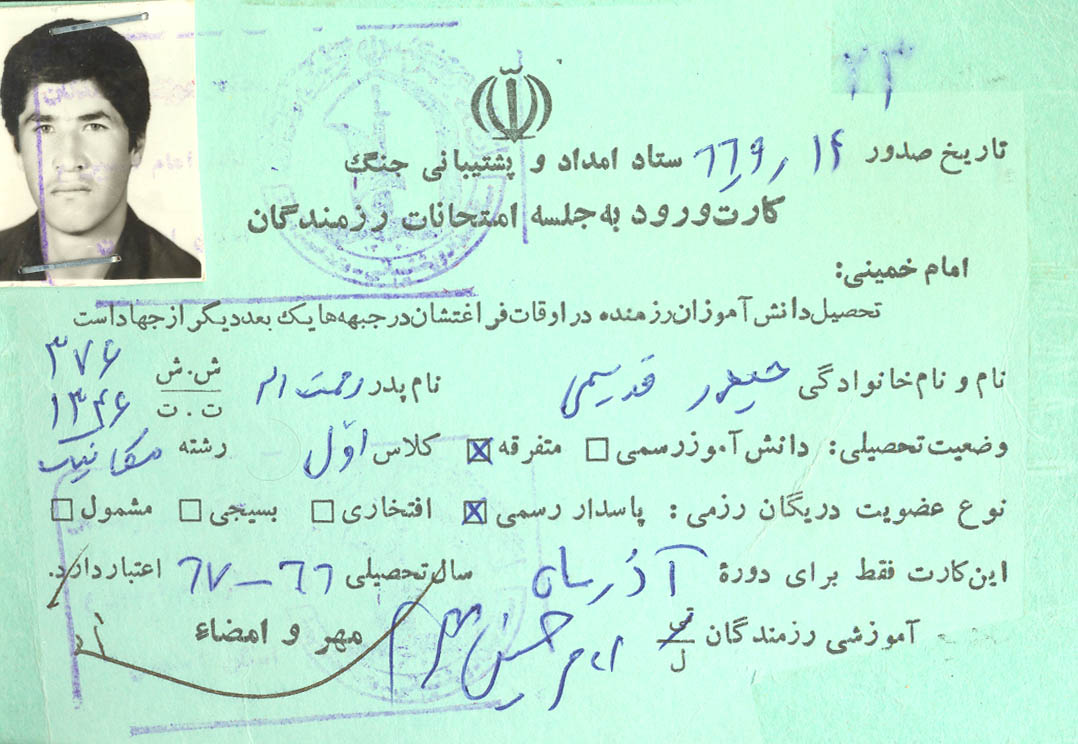 ۷۳
تاریخ صدور ۱۴ ر ۹ ر ۶۶
ستاد امداد و پشتیبانی جنگ
کارت ورود به جلسه امتحانات رزمندگان
امام خمینی:
تحصیل دانش آموزان رزمنده در اوقات فراغتشان در جبهه‌ها یک بعد دیگر از جهاد است
نام و نام خانوادگی حیدر قدیمی نام پدر رحمت اله ش.ش ۳۷۶
ت.ت ۱۳۴۶
وضعیت تحصیلی: دانش آموز رسمی □ متفرقه ☒ کلاس اوّل رشته مکانیک
نوع عضویت در یگان رزمی: پاسدار رسمی ☒ افتخاری □ بسیجی □ مشمول □
این کارت فقط برای دورهٔ آذر ماه سال تحصیلی ۶۶ – ۶۷ اعتبار دارد.
آموزشی رزمندگان تی
ل امام حسین مهر و امضاء